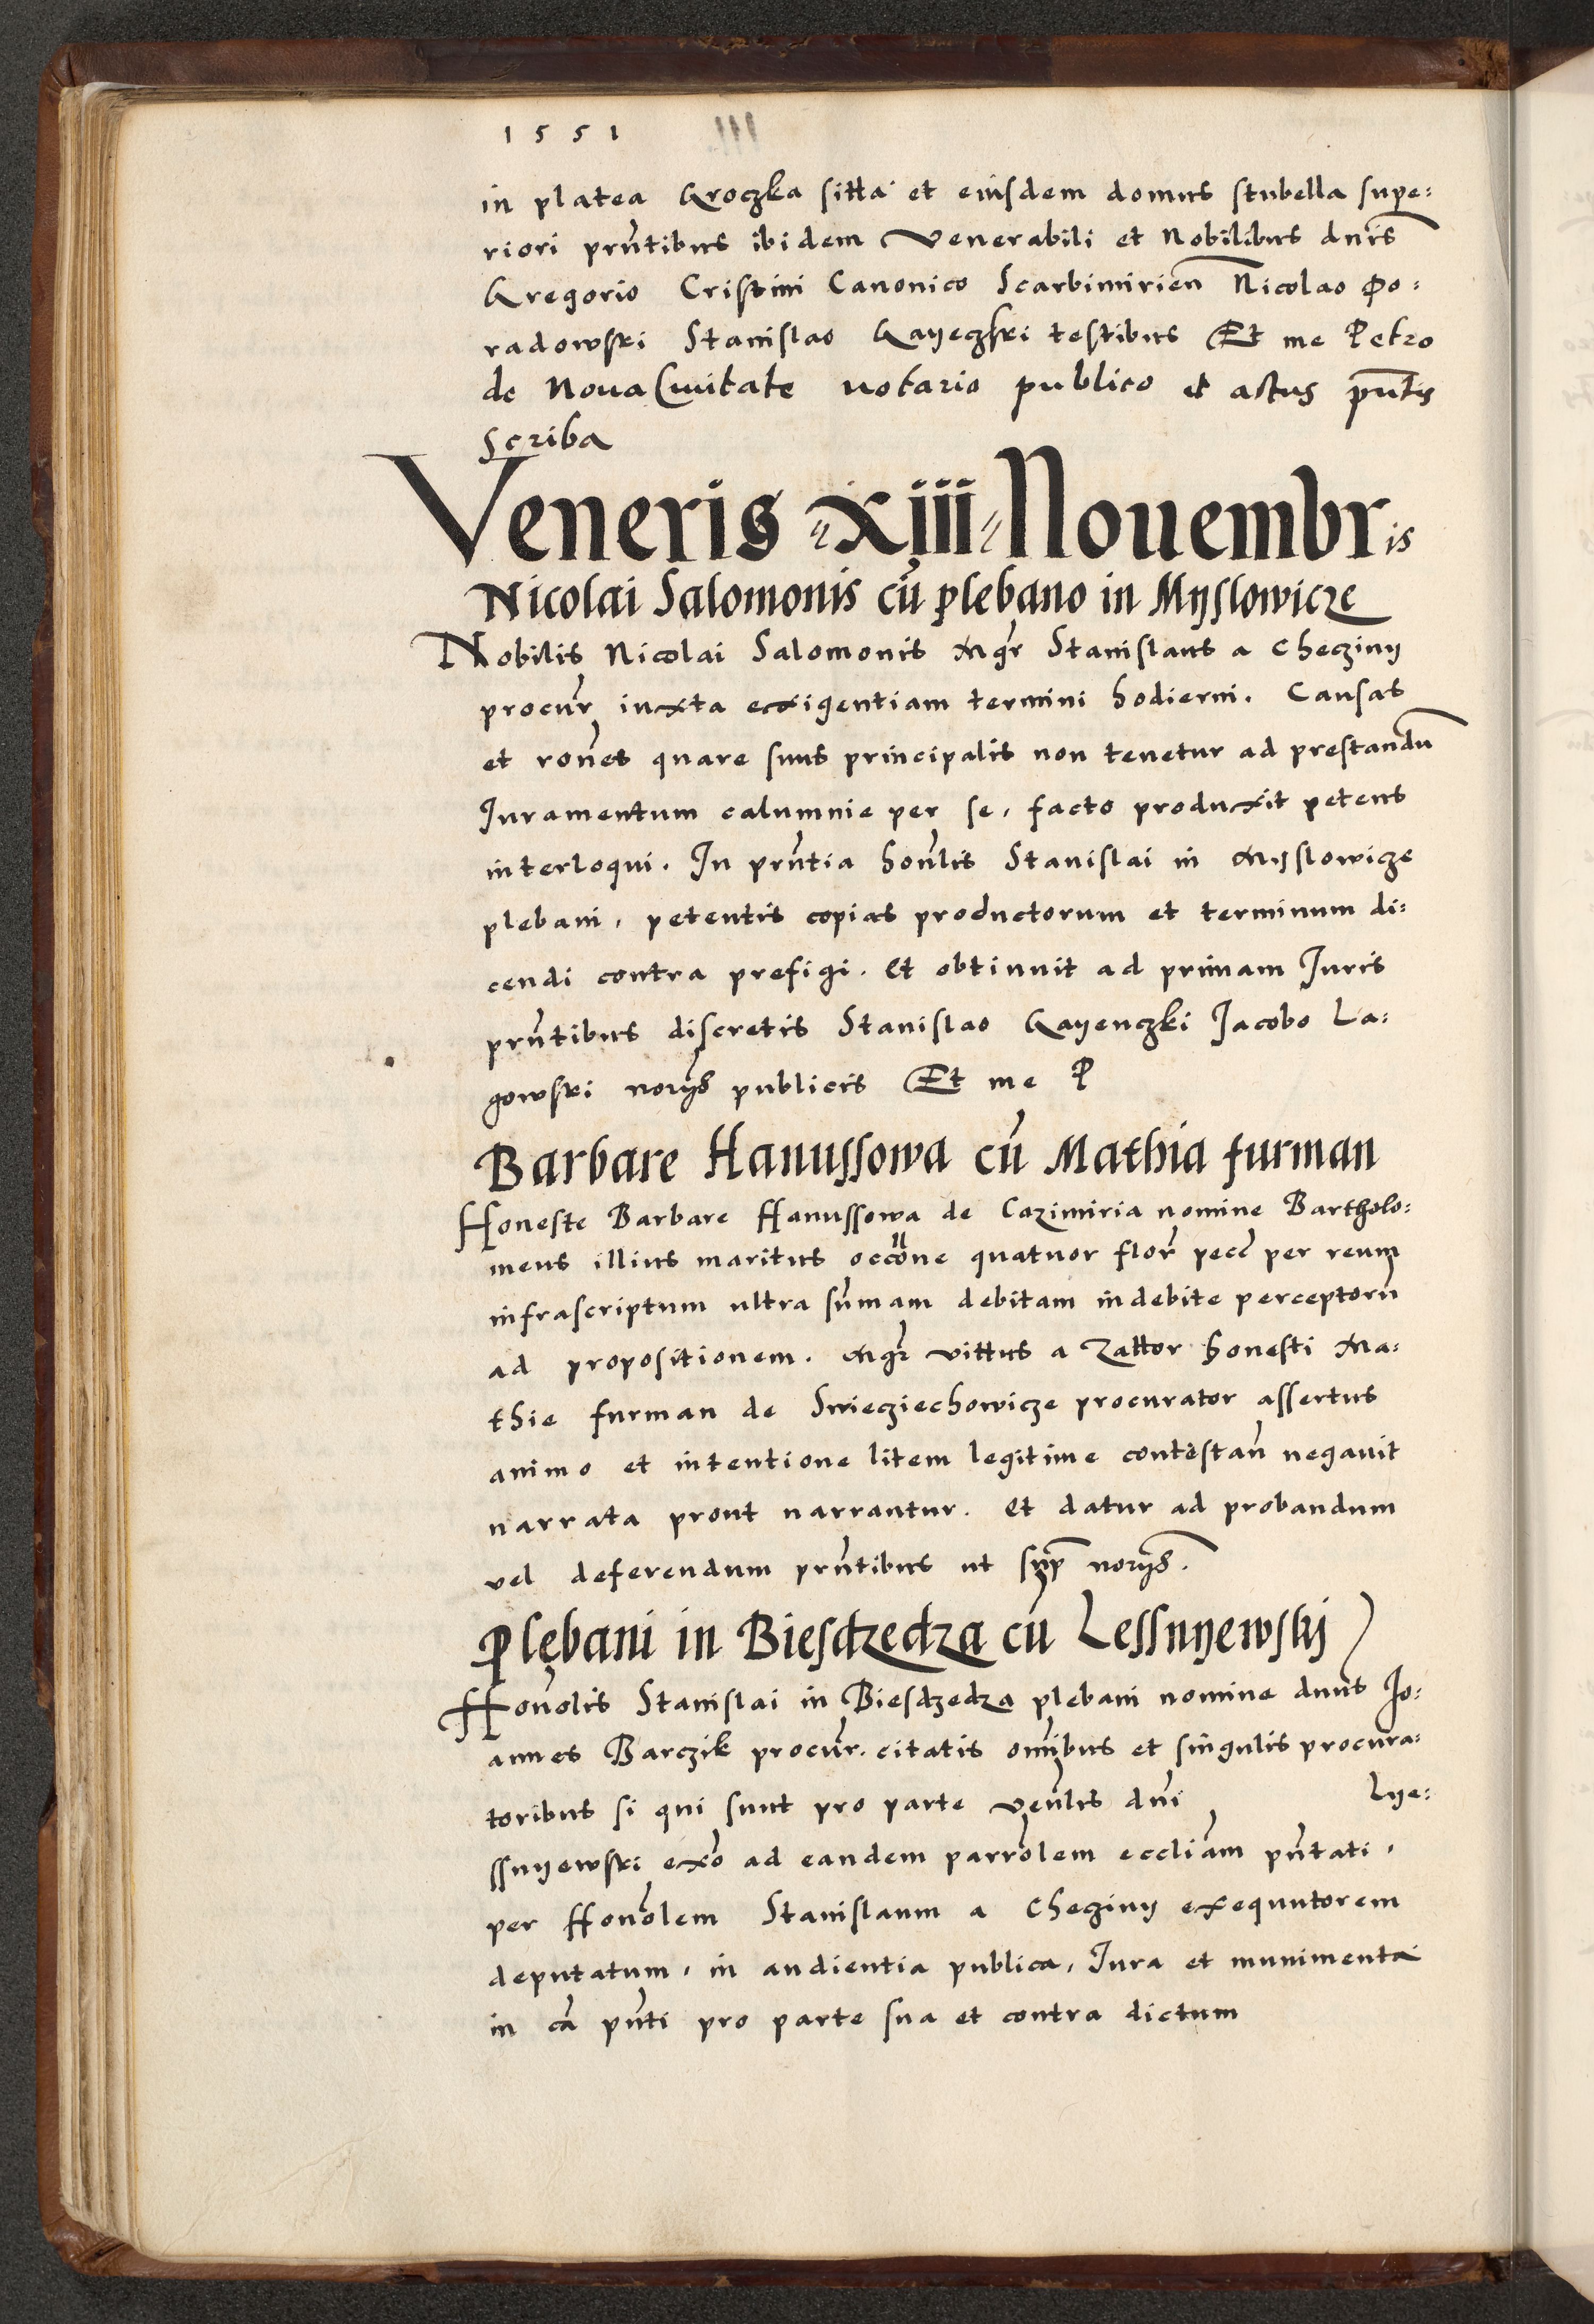 1551
in platea Groczka sitta et eiusdem domus stubella supe:
riori prñtibus ibidem Venerabili et Nobilibus dnis
Gregorio Cristini Canonico Scarbimirien Nicolao Po:
radowski Stanislao Gayeczki testibus Et me Petro
de Noua Ciuitate notario publico et actus pñtis
scriba
Veneris xiii Nouembris
Nicolai Salomonis cũ plebano in Myslowicze
Nobilis Nicolai Salomonis Mgr Stanislaus a Checziny
procur iuxta exigentiam termini hodierni. Causas
et rones quare suus principalis non tenetur ad prestandũ
Iuramentum calumnie per se, facto produxit petens
interloqui. In prñtia honlis Stanislai in Myslowicze
plebani, petentis copias productorum et terminum di:
cendi contra prefigi. Et obtinuit ad primam Iuris
prñtibus discretis Stanislao Gayenczki Iacobo La:
gowski norijs publicis Et me P
Barbare Hanussowa cũ Mathia furman
Honeste Barbare Hanussowa de Cazimiria nomine Bartholo:
meus illius maritus occõne quatuor flor pecc per reum
infrascriptum ultra sũmam debitam indebite perceptorũ
ad propositionem. Mgr vittus a Zattor honesti Ma:
thie furman de Swieciechowicze procurator assertus
animo et intentione litem legitime contestañ negauit
narrata prout narrantur. Et datur ad probandum
vel deferendum prñtibus ut sup norijs.
Plebani in Biesdzedza cũ Lessnyewskij
Honolis Stanislai in Biesdzedza plebani nomine dnus Io:
annes Barczik procur. citatis omibus et singulis procura:
toribus si qui sunt pro parte venlis dni Lye:
ssnyewski exo ad eandem parrolem eccliam pñtati,
per Honolem Stanislaum a Checziny exequutorem
deputatum, in audientia publica, Iura et munimenta
in cã pñti pro parte sua et contra dictum